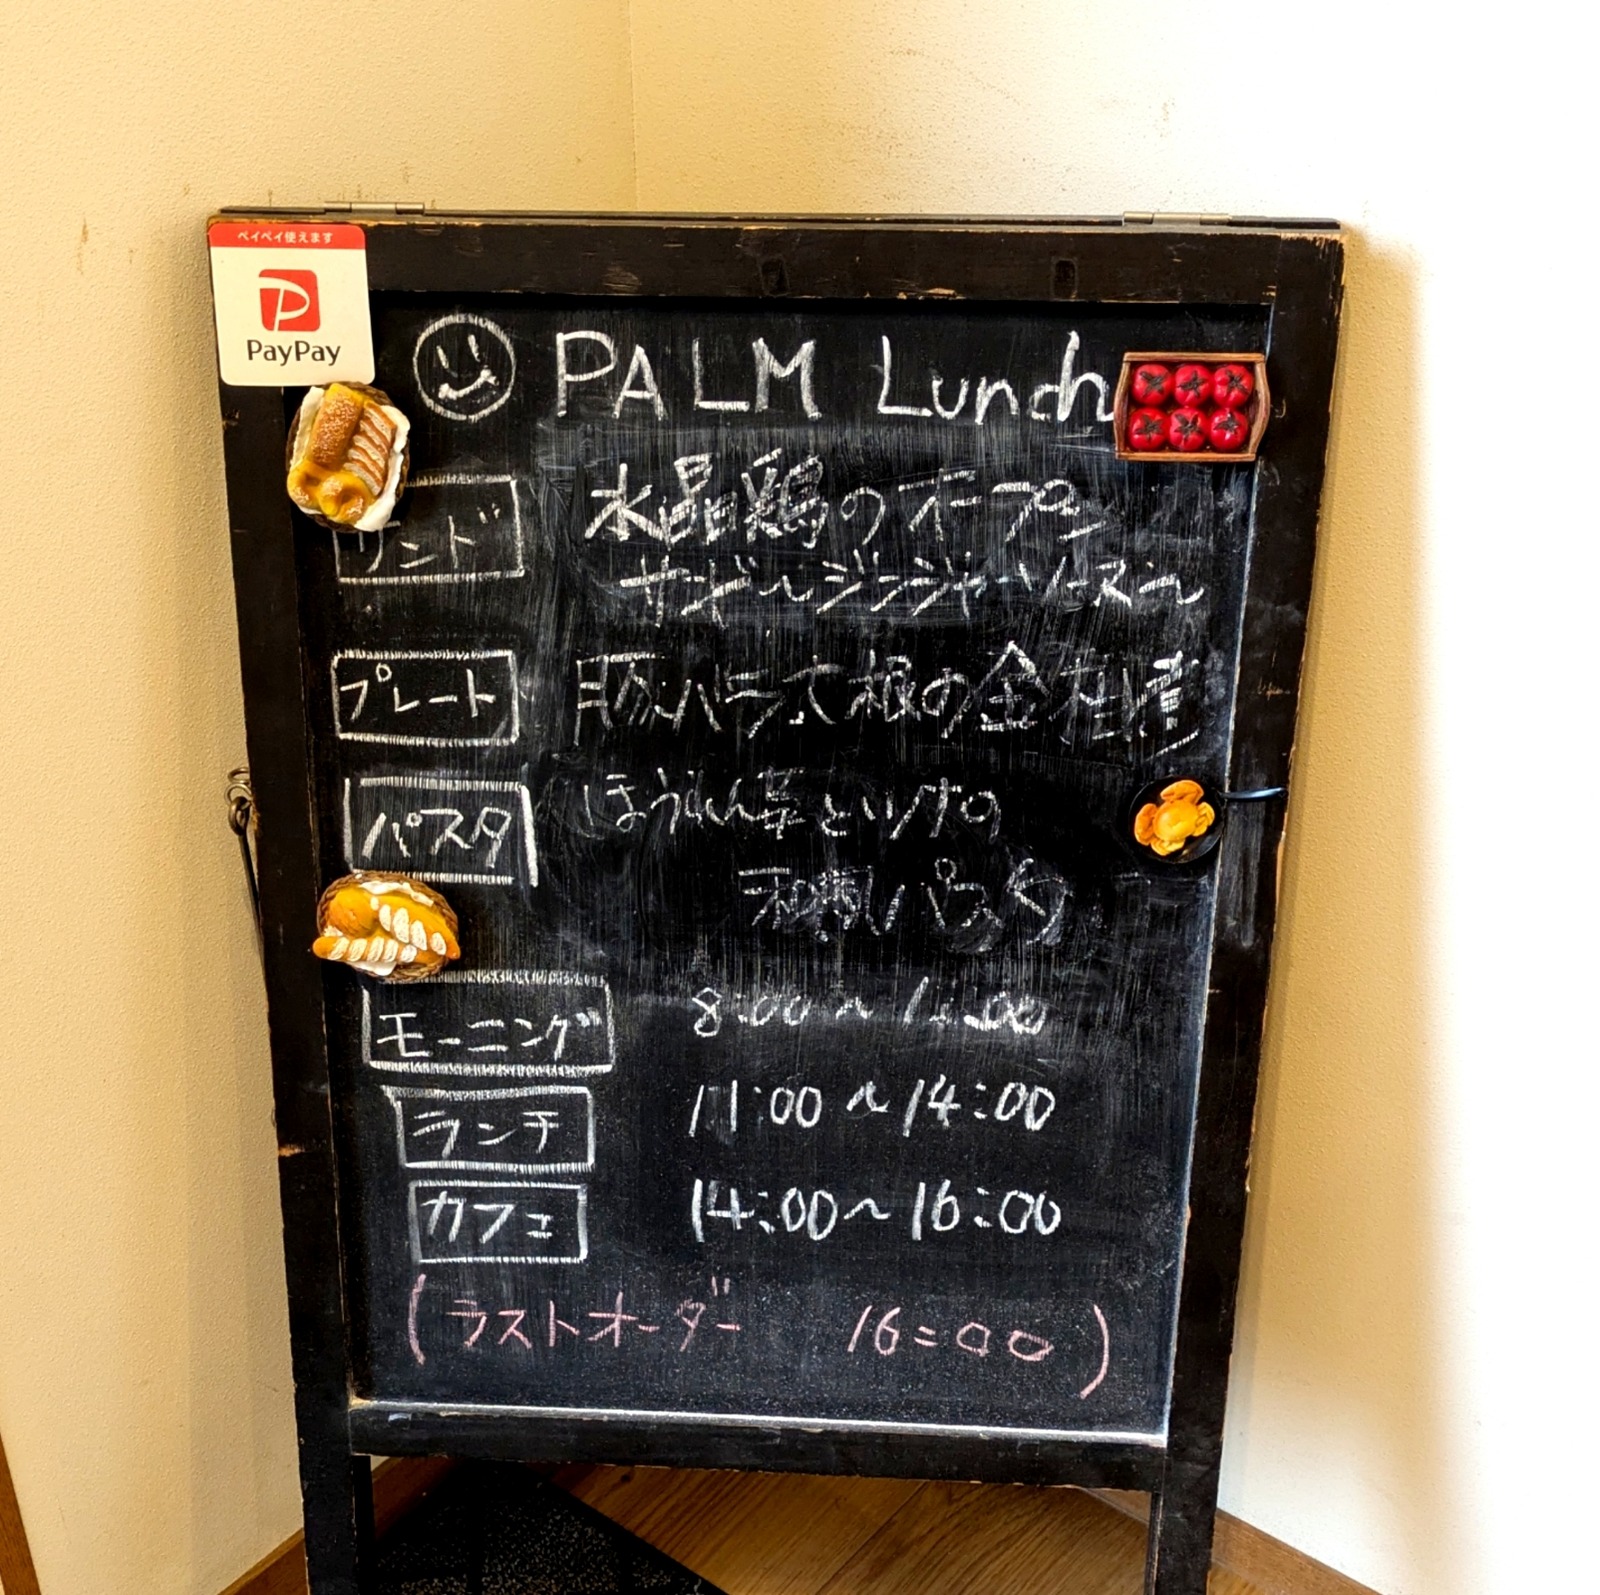 ペイペイ使えます
PayPay
PALM Lunch
サンド
水晶鶏のオープン
サンド〜ジンジャーソース〜
プレート
豚バラ大根の金柑煮
パスタ
ほうれん草とツナの
和風パスタ
モーニング 8:00〜
ランチ 11:00〜14:00
カフェ 14:00〜16:00
(ラストオーダー 16:00)